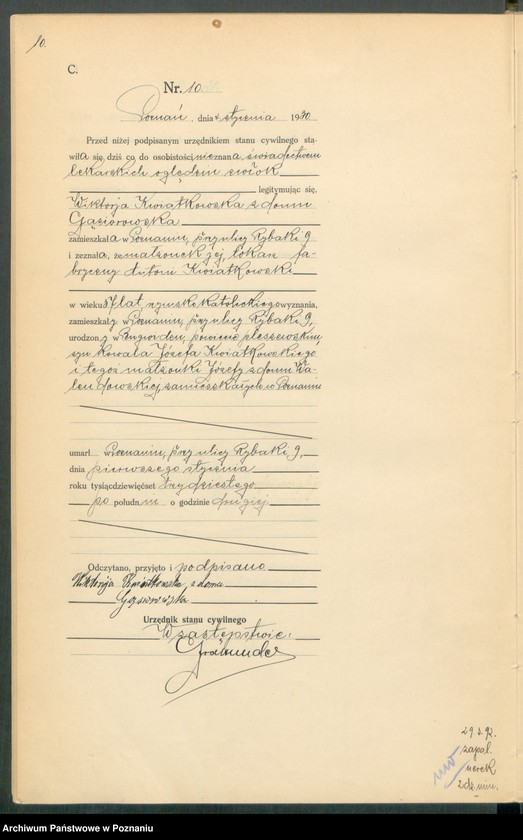 10.
C.
Nr. 10
Poznań, dnia 2 stycznia 1930
Przed niżej podpisanym urzędnikiem stanu cywilnego sta-
wiła się dziś co do osobistości nieznana świadectwem
lekarskich oględzin zwłok
legitymując się,
Wiktorja Kwiatkowska z domu
Gąsiorowska
zamieszkała w Poznaniu, przy ulicy Rybaki 9
i zeznała, że małżonek jej, tokarz fa-
bryczny Antoni Kwiatkowski
w wieku lat, rzymsko katolickiego wyznania,
zamieszkały w Poznaniu, przy ulicy Rybaki 9,
urodzony w powiecie pleszewskim
syn kowala Józefa Kwiatkowskiego
i tegoż małżonki Józefy z domu Wa-
lendowskiej zamieszkałych w Poznaniu
umarł w Poznaniu, przy ulicy Rybaki 9,
dnia pierwszego stycznia
roku tysiącdziewięćset trzydziestego
po południu o godzinie drugiej
Odczytano, przyjęto i podpisano
Wiktorja Kwiatkowska, z domu
Gąsiorowska
Urzędnik stanu cywilnego
W zastępstwie:
29.3.92.
zapal.
nerek
Archiwum Państwowe w Poznaniu